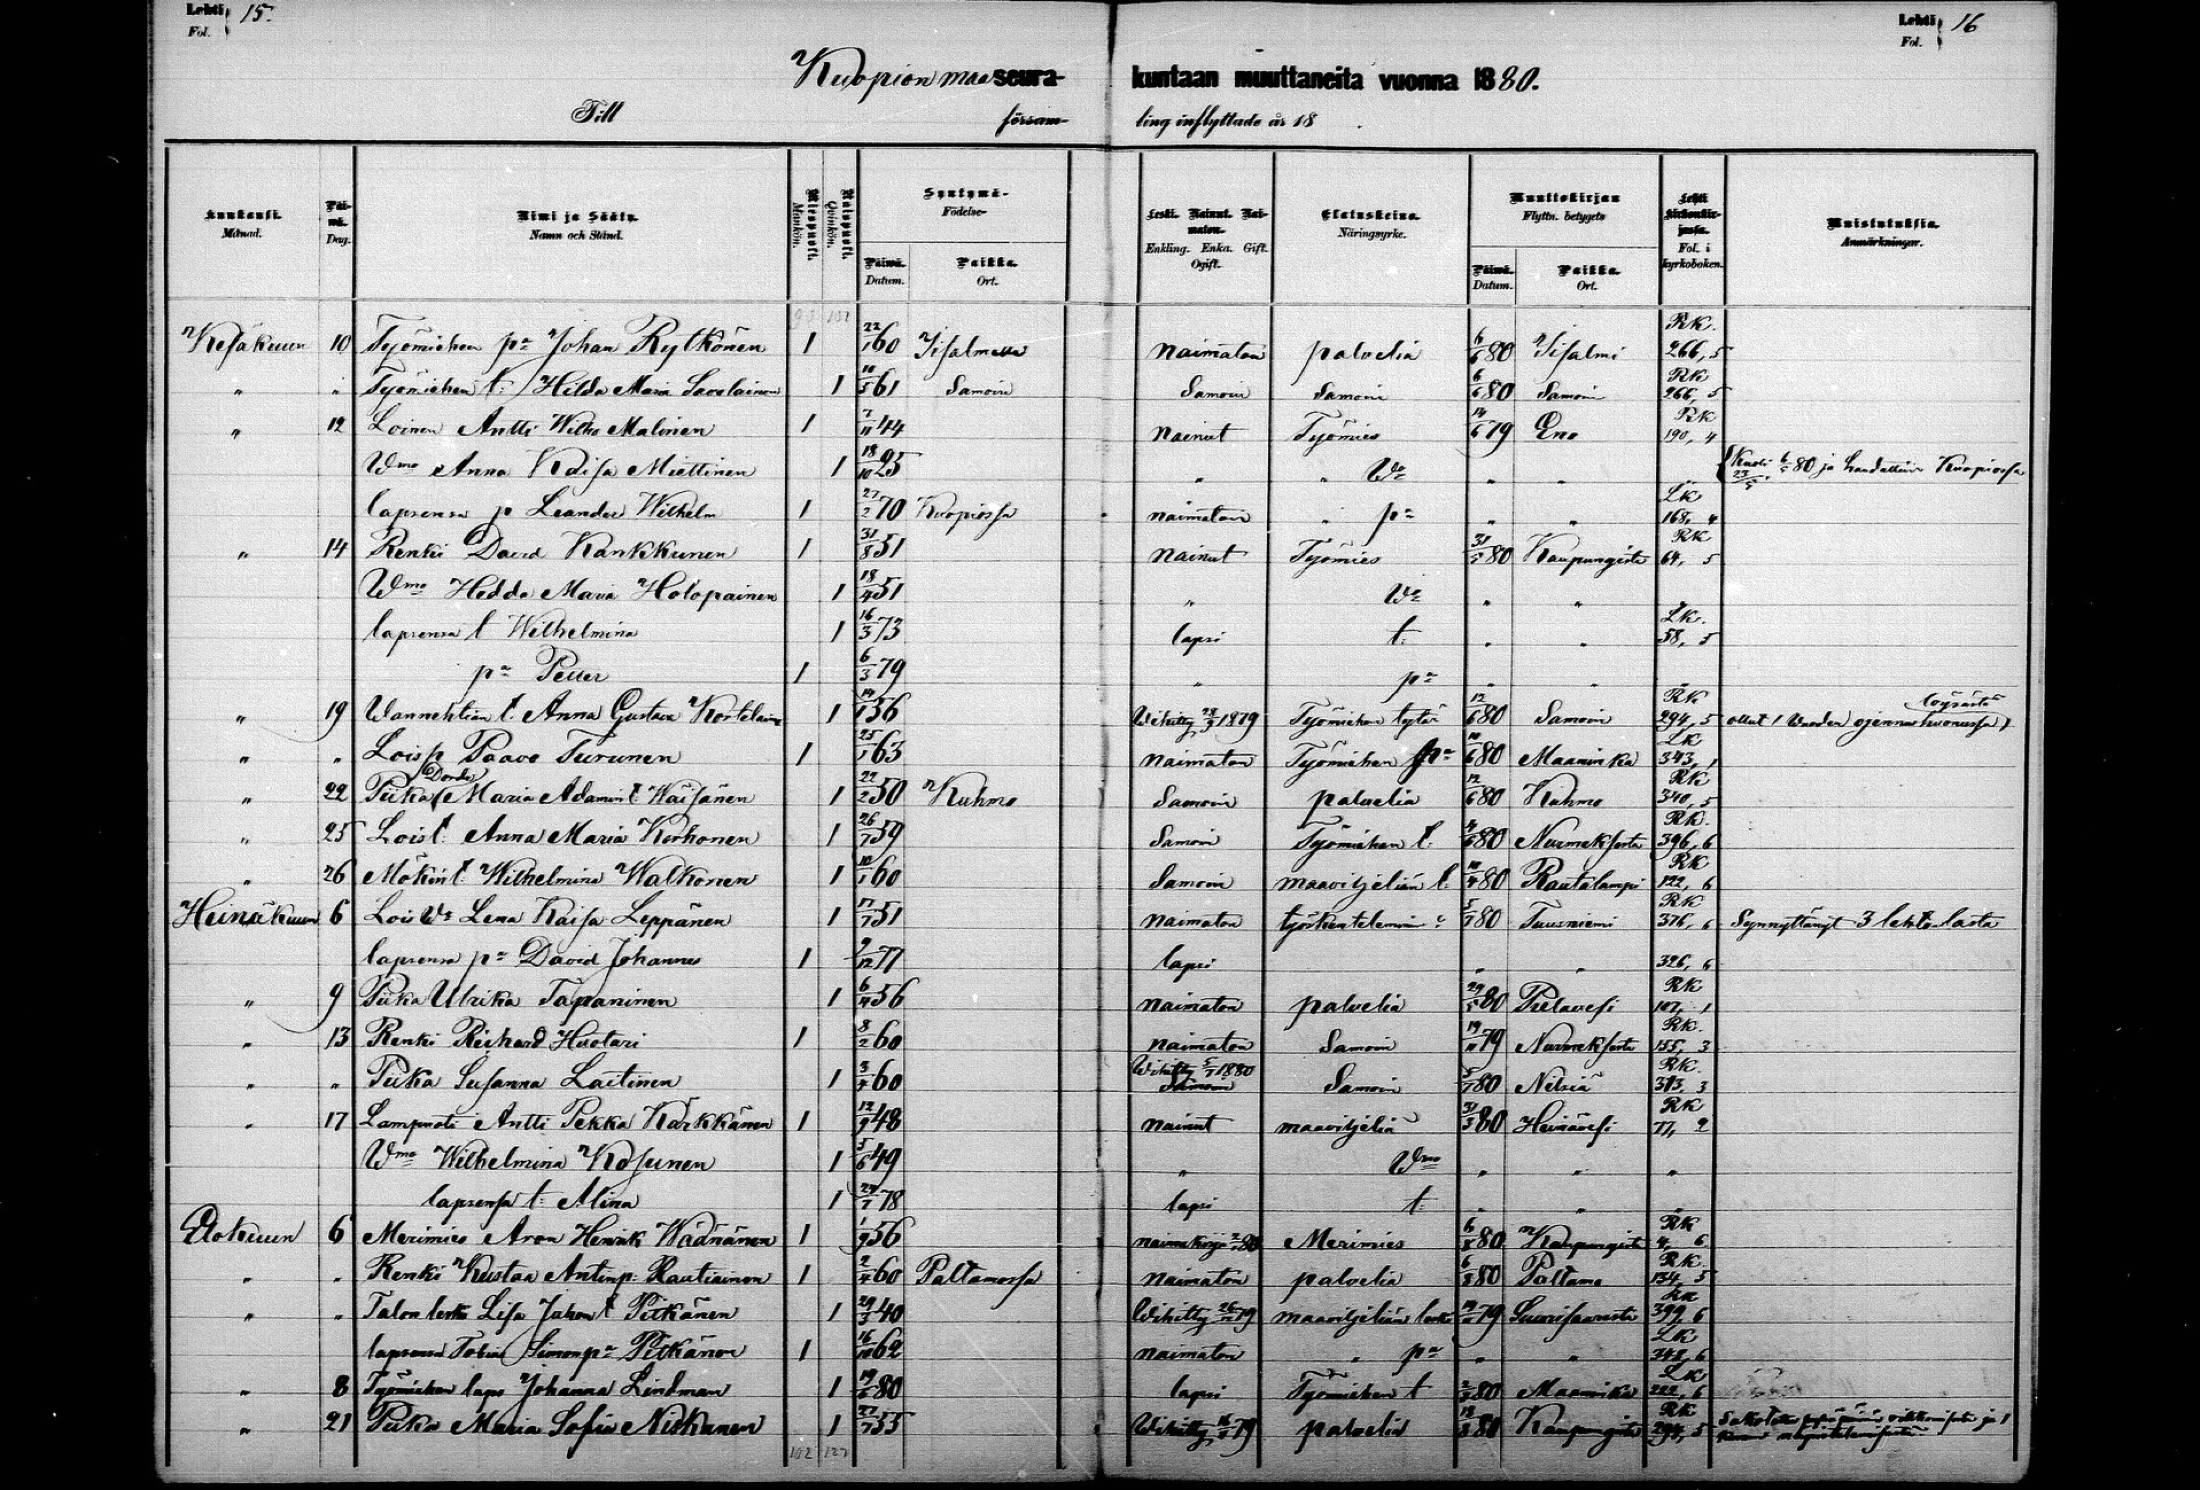 Lehti Fol. 15.
Lehti Fol. 16
Kuopion maaseurakuntaan muuttaneita vuonna 1880.
Till församling inflyttade år 18 .
Kuukausi. Månad. | Päivä. Dag. | Nimi ja Sääty. Namn och Stånd. | Miespuoli. Mankön. | Vaimopuoli. Qvinkön. | Syntymä- Födelse- | Päivä. Datum. | Paikka. Ort. | Leski. Nainut. Naimaton. Enkling. Enka. Gift. Ogift. | Elatuskeino. Näringsyrke. | Muuttokirjan Flyttn. betygets | Päivä. Datum. | Paikka. Ort. | Lehti kirkonkirjassa. Fol. i kyrkoboken. | Muistutuksia. Anmärkningar.
Kesäkuun 10 Työmiehen pa Johan Rytkönen 1 22/1 60 Iisalmella naimaton palvelia 6/6 80 Iisalmi RK. 266, 5
" " Työmiehen t: Hilda Maria Savolainen 1 10/5 61 Samoin Samoin Samoin 6/6 80 Samoin RK 266, 5
" 12 Loinen Antti Wilho Malinen 1 7/11 44 nainut Työmies 14/6 79 Eno RK 190, 4
Wmo Anna Kaisa Miettinen 1 18/10 25 " " Wo " " { Kuoli 6/5 80 ja haudattiin 23/5 Kuopiossa
lapsensa p Leander Wilhelm 1 27/2 70 Kuopiossa naimaton " pa " " LK 168, 4
" 14 Renki David Kankkunen 1 31/8 51 nainut Työmies 31/5 80 Kaupungista RK 64, 5
Wmo Hedda Maria Holopainen 1 18/4 51 " Wo " " "
lapsensa t Wilhelmina 1 16/3 73 lapsi t: " " LK. 58, 5
pa Petter 1 6/3 79 " pa " " "
" 19 Anna Gustava Kortelainen 1 14/1 36 Wihitty 1879 Työmiehen tytär 12/6 80 Samoin RK 294, 5 ollut 1 Vuoden ojennushuoneessa
" " Lois p Paavo Turunen 1 25/1 63 naimaton Työmiehen pa 10/6 80 Maaninka LK 343, 1
" 22 Piika Maria Adamint Wäisänen 1 22/2 50 Kuhmo Samoin palvelia 12/6 80 Kuhmo RK 340, 5
" 25 Lois t: Anna Maria Korhonen 1 26/7 59 Samoin Työmiehen t: 4/6 80 Nurmeksesta RK. 396, 6
" 26 Mökin t. Wilhelmina Walkonen 1 10/1 60 Samoin maaviljeliän t. 10/4 80 Rautalampi RK 122, 6
Heinäkuun 6 Lois Wo Lena Kaisa Leppänen 1 17/7 51 naimaton 5/7 80 Tuusniemi RK 376, 6 Synnyttänyt 3 lehtolasta
lapsensa pa David Johannes 1 9/12 77 lapsi " " 326, 6
" 9 Piika Ulrika Tapaninen 1 6/4 56 naimaton palvelia 29/5 80 Pielavesi RK 107, 1
" 13 Renki Richard Huotari 1 8/2 60 naimaton Samoin 19/11 79 Nurmeksesta RK. 155, 3
" " Piika Susanna Laitinen 1 60 Wihitty 5/7 1880 Samoin Samoin 5/7 80 Nilsiä RK. 313, 3
" 17 Lampuoti Antti Pekka Kärkkänen 1 12/9 48 nainut maaviljeliä 31/3 80 Heinävesi RK 77, 2
Wmo Wilhelmina Kosunen 1 5/6 49 " Wmo " " "
lapsensa t: Alina 1 24/7 78 lapsi t: " " "
Elokuun 6 Merimies Aron Henrik Wäänänen 1 1/9 56 Merimies 6/8 80 Kaupungista RK 4, 6
" " Renki Kustaa Antinp. Rautiainen 1 2/4 60 Paltamossa naimaton palvelia 6/8 80 Paltamo RK. 134, 5
" " Talon leski Lisa Juhon t Pitkänen 1 29/3 40 Wihitty 79 maaviljeliän leski 79 399, 6
lapsensa Tobias Simonpa Pitkänen 1 16/10 62 naimaton " pa " " LK 348, 6
" 8 Työmiehen laps Johanna Lindman 1 19/6 80 lapsi Työmiehen t 80 Maaninka LK 222, 6
" 21 Piika Maria Sofia Niskanen 1 27/7 55 Wihitty 79 palvelia 80 Kaupungista RK 294, 5
102 127